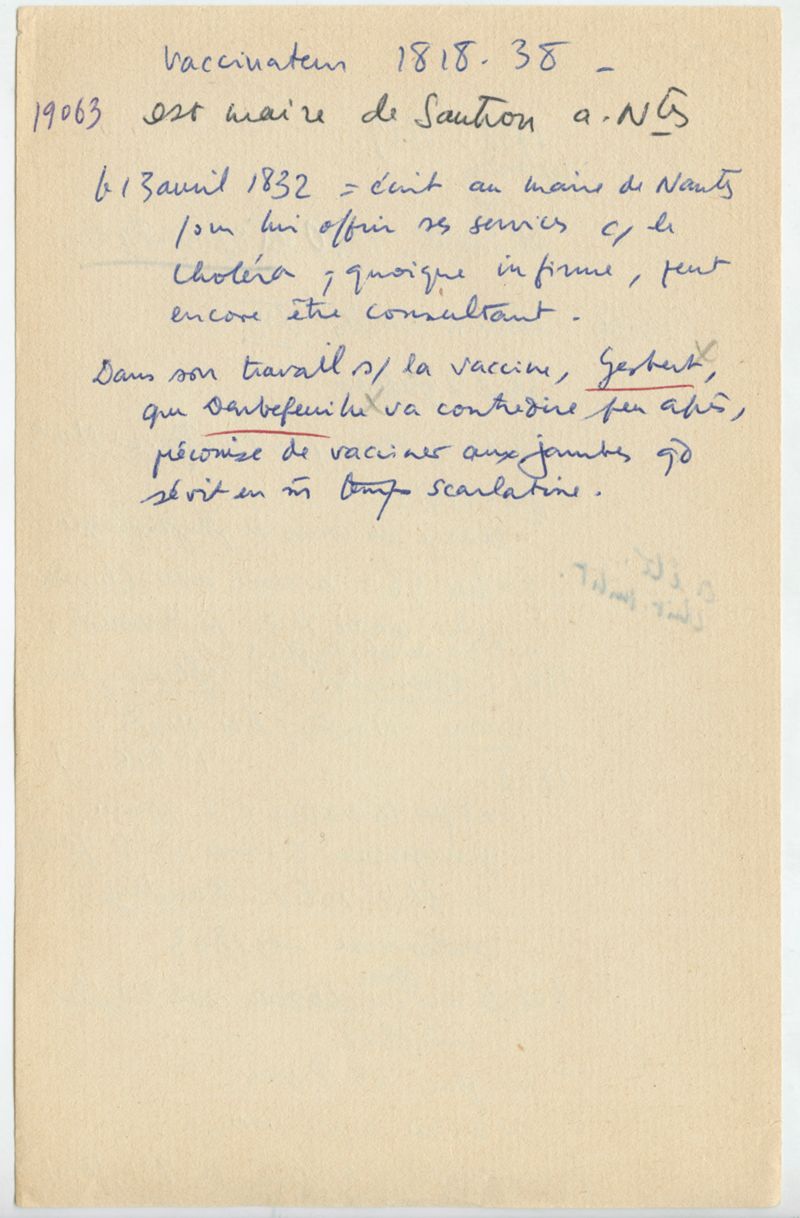 Vaccinateur 1818. 38 -
19063 est maire de Sautron a. Ntes
le 13 avril 1832 = écrit au maire de Nantes
pour lui offrir ses services c/ le
choléra ; quoique infirme, peut
encore être consultant.
Dans son travail s/ la vaccine, Gesbert x,
que Darbefeuille x va contredire peu après,
préconise de vacciner aux jambes qd
sévit en m temps scarlatine.
a été
chir.